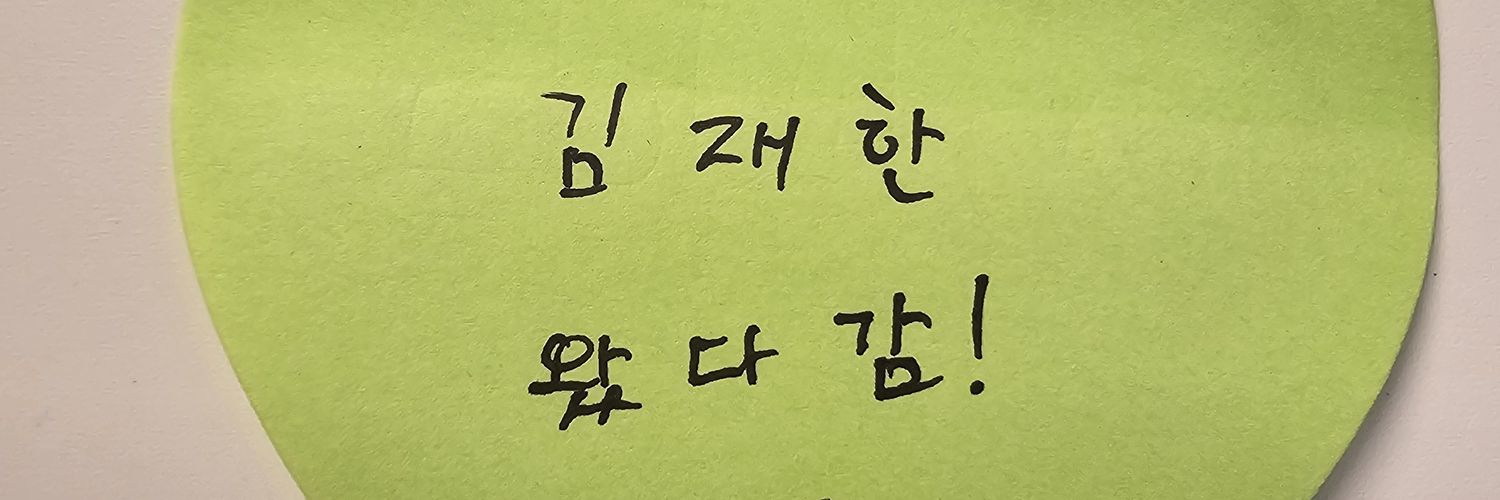 김재한
왔다감!